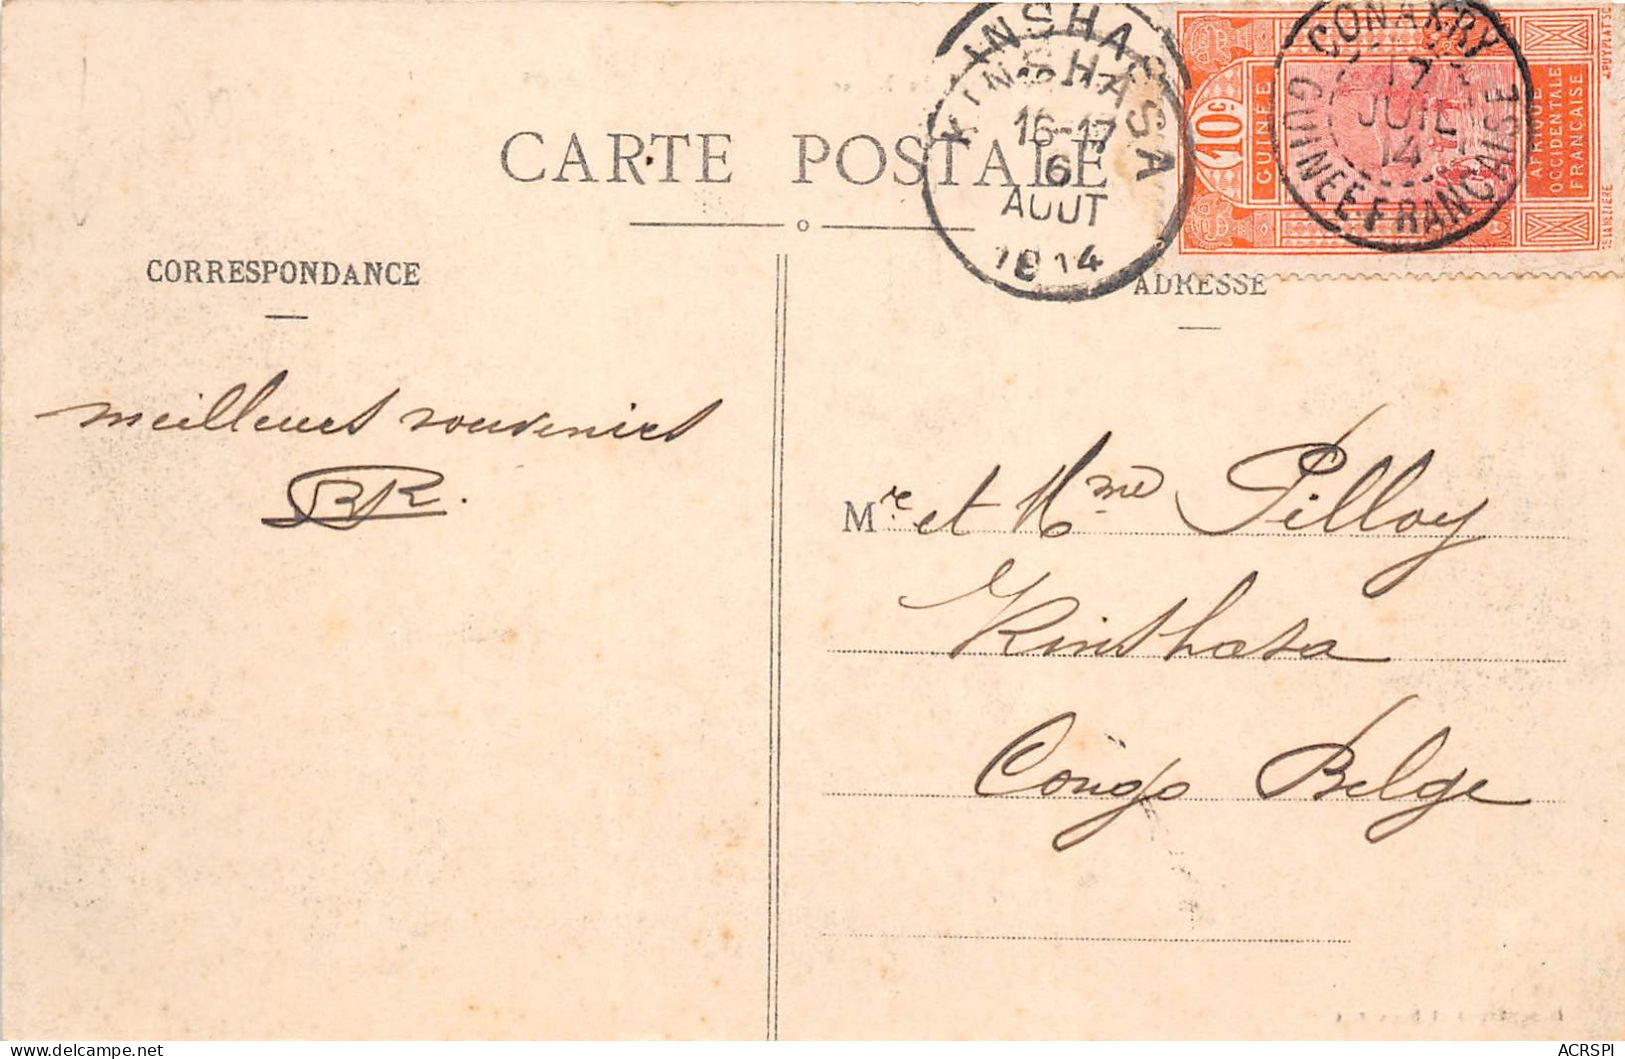 KINSHASA
KINSHASA
16-17
6
AOUT
1914
CONAKRY
JUIL
14
GUINÉE FRANÇAISE
10c
GUINÉE
AFRIQUE
OCCIDENTALE
FRANÇAISE
CARTE POSTALE
CORRESPONDANCE
ADRESSE
meilleurs souvenirs
BR.
Mre et Mme Pilloy
Kinshasa
Congo Belge
ACRSPI